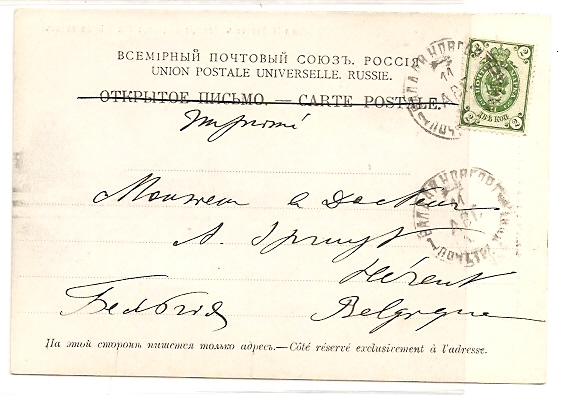 ВСЕМІРНЫЙ ПОЧТОВЫЙ СОЮЗЪ. РОССІЯ
UNION POSTALE UNIVERSELLE. RUSSIE.
ОТКРЫТОЕ ПИСЬМО. — CARTE POSTALE.
Imprimé
Monsieur le Docteur
A. Spruyt
Hérent
Бельгія Belgique
На этой сторонѣ пишется только адресъ.—Côté réservé exclusivement à l'adresse.
2 2
ДВѢ КОП
2 2